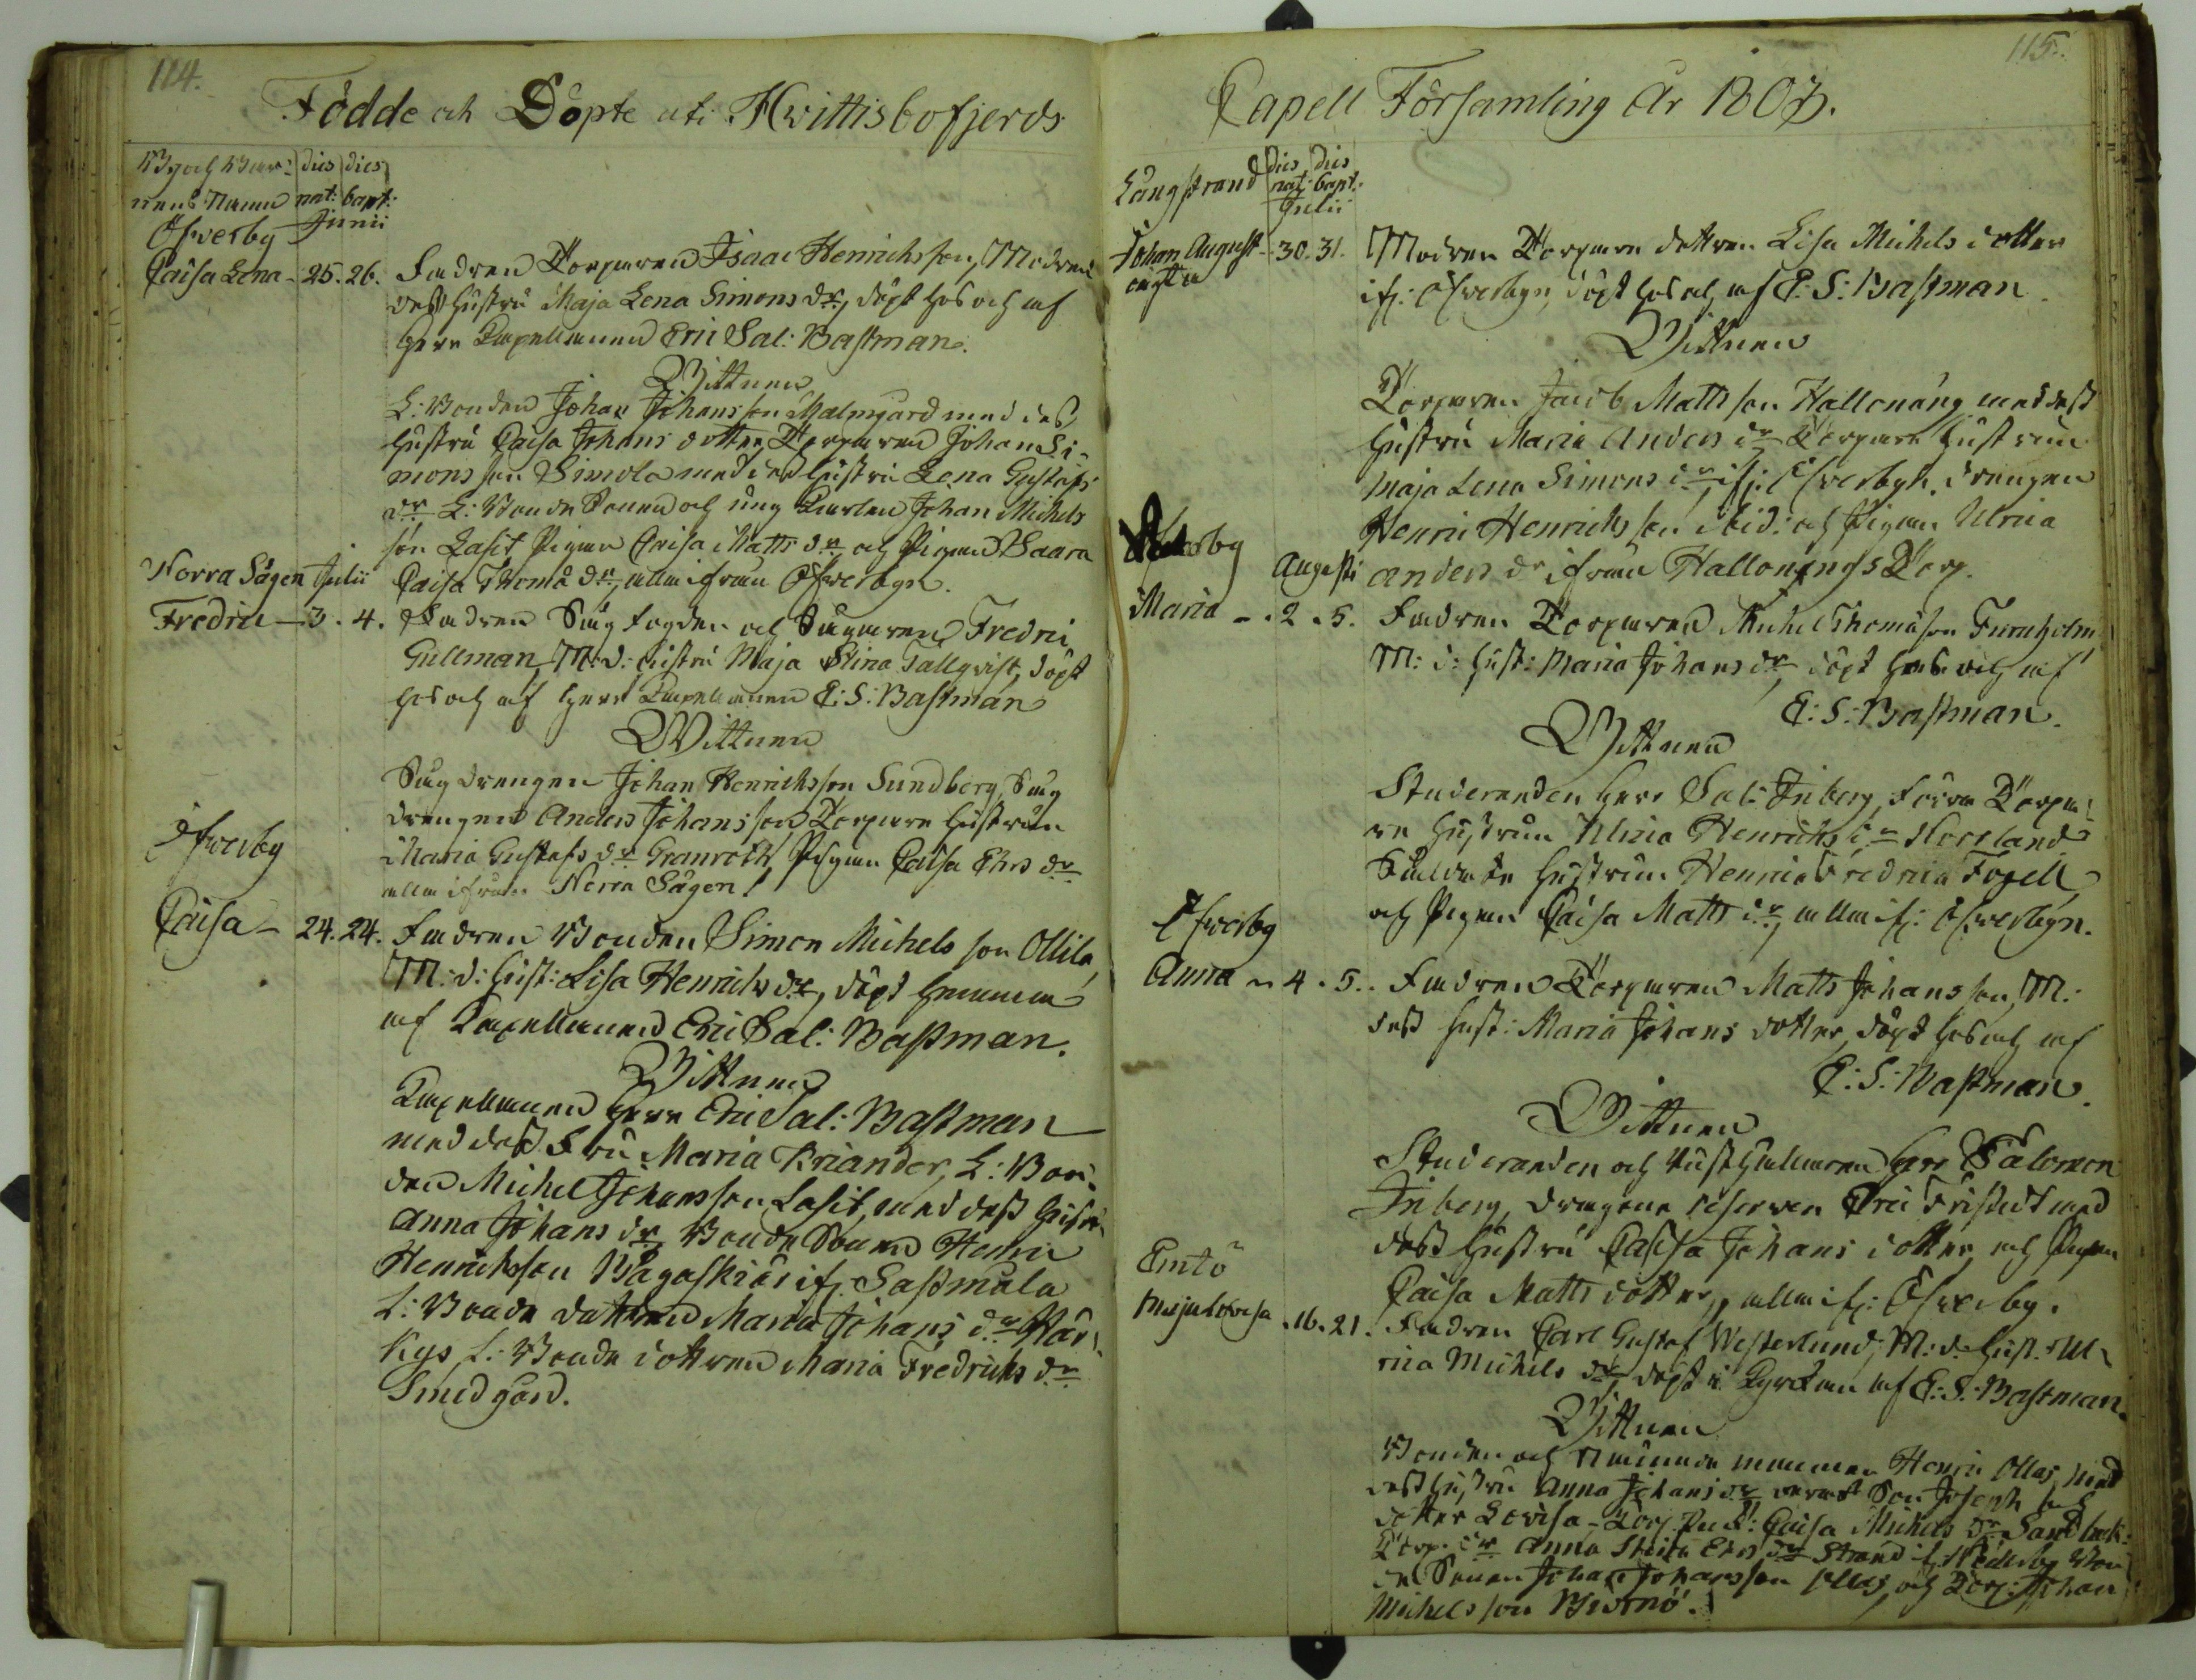 114.
Födde och Döpte uti Hvittisbofjerds
By och Bar- dies dies
nens Namn nat: bapt:
Öfverby Junii
Caisa Lena - 25. 26. Fadren Torparen Isaac Henrichsson, Modren
dess hustru Maja Lena Simons dr, döpt hos och af
herr Capellanen Eric Sal: Bastman.
Vittnen
L: Bonden Johan Johansson Malmgård med des
hustru Caisa Johans dotter, Torparen Johan Si-
mons son Simola med des hustru Lena Gustafs
dr L: Bonde Sonen och ung Karlen Johan Michels
son Lasit Pigan Caisa Matts dr och Pigan Saara
Norra Sågen Julii Caisa Thomæ dr, alla ifrån Öfverbyn.
Fredric - 3. 4. Fadren Såg fogden och Sågaren Fredric
Gullman, M: d: hustru Maja Stina Tallqvist, döpt
hos och af herr Capellanen E: S: Bastman
Vittnen
Såg drengen Johan Henrichsson Sundberg, Såg
drengen Anders Johansson Torpare hustrun
Öfverby Maria Gustafs dr Granroth, Pigan Caisa Ehrs dr
alla ifrån Norra Sågen.
Caisa - 24. 24. Fadren Bonden Simon Michels son Ollila,
M: d: hust: Lisa Henrichs dr, döpt hemma
af Capellanen Eric Sal: Bastman.
Vittnen
Capellanen herr Eric Sal: Bastman
med dess Fru Maria Kriander, L: Bon-
den Michel Johansson Lasit, med dess hustru
Anna Johans dr Bonde Sonen Henric
Henrichsson Bågaskiär if: Sastmola
L: Bonde dottren Maria Johans dr Här-
kys, L: Bonde dottren Maria Fredrichs dr
Smedgård.
115.
Capell Församling År 1807.
Långstrand dies dies
nat: bapt:
Julii
Johan August - 30. 31. Modren Torpare dottren Lisa Michels dotter
oägta if: Öfverbyn, döpt hos och af E: S: Bastman.
Vittnen
Torparen Jacob Matts son Hallonäng med dess
hustru Maria Anders dr Torpare hustrun
Maja Lena Simons dr if: Öfverbyn. drengen
Öfverby Henric Henrichs son ibid: och Pigan Ulrica
Augusti Anders dr ifrån Hallonängs Torp.
Maria - . 2 . 5. Fadren Torparen Michel Thomasson Furuholm
M: d: hust: Maria Johans dr döpt hos och af
E: S: Bastman.
Vittnen
Studeranden herr Sal: Friberg, förra Torpa-
re hustrun Ulrica Henrichs dr Norrland
Soldate hustrun Henrica Fredrica Fogell
Öfverby och Pigan Caisa Matts dr, alla if: Öfverbyn.
Anna - 4 . 5. Fadren Torparen Matts Johansson, M:
dess hust: Maria Johans dotter, döpt hos och af
E: S: Bastman.
Vittnen
Studeranden och herr Salomon
Friberg, Eric Fristedt med
dess hustru Caisa Johans dotter, och Pigan
Emtö Caisa Matts dotter, alla if: Öfverby.
Maja Lovisa . 16. 21. Fadren Carl Gustaf Westerlund, M: d: hust. Ul-
rica Michels dr, döpt i Kyrckan af E: S: Bastman.
Vittnen
Bonden och Nämndemannen Henric Ollas, med
dess hustru Anna Johans dr Son Joseph och
dotter Lovisa, Caisa Michels dr Sandback:
Torp. dr Anna Stina Ers dr Strand if. Söderby, Bon
de Sonen Johan Johansson Ollas, och Torp: Johan
Michelsson Björnö.